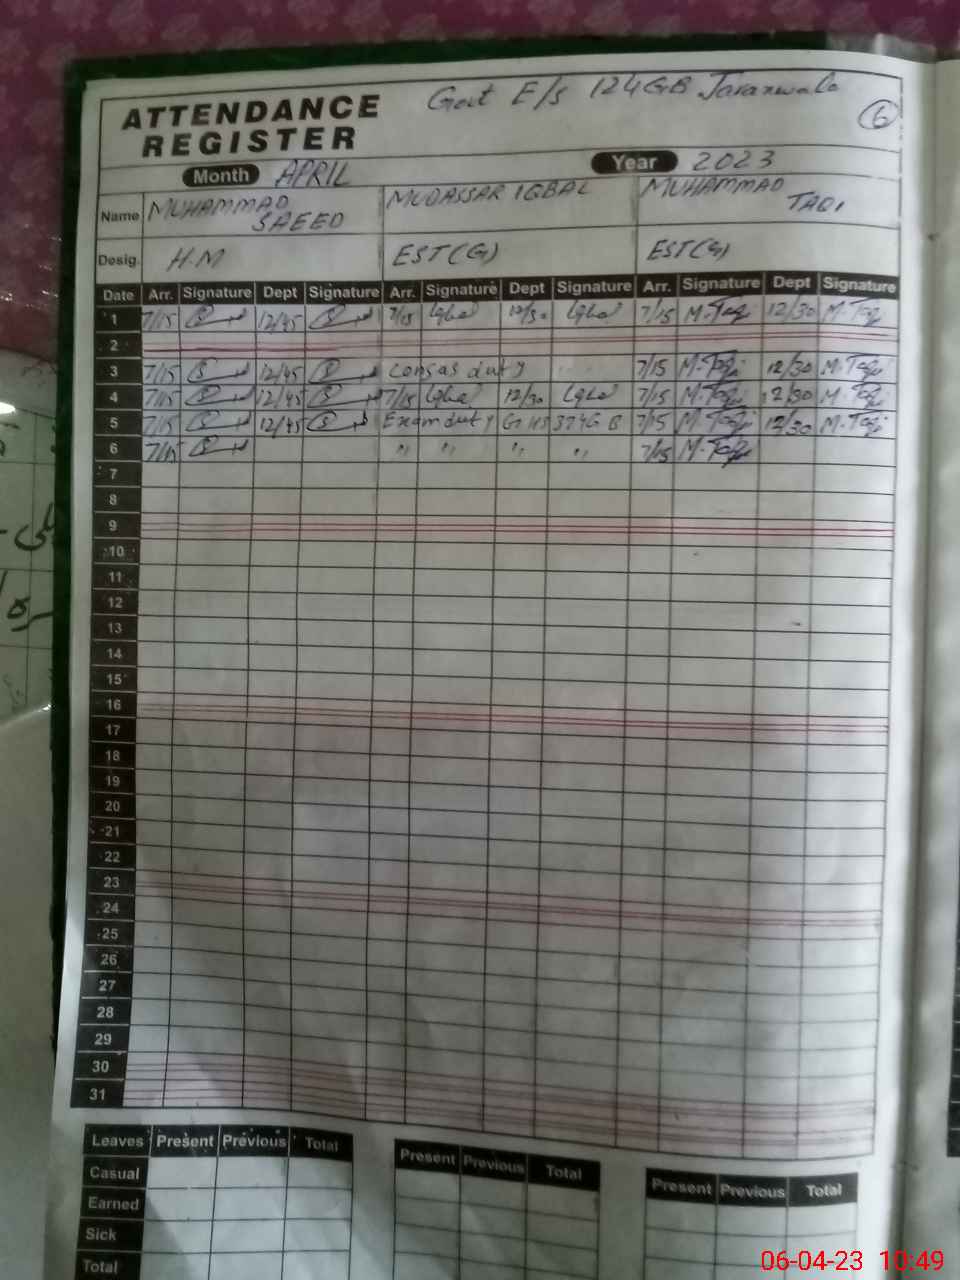 Govt E/S 124GB Jaranwala
6
ATTENDANCE
REGISTER
Month APRIL Year 2023
Name MUHAMMAD SAEED MUDASSAR IQBAL MUHAMMAD TAQI
Desig. H.M EST(G) EST(G)
Date Arr. Signature Dept Signature Arr. Signature Dept Signature Arr. Signature Dept Signature
1 7/15 12/45 7/15 Iqbal 12/30 Iqbal 7/15 M.Taqi 12/30 M.Taqi
2
3 7/15 12/45 Consas duty 7/15 M.Taqi 12/30 M.Taqi
4 7/15 12/45 7/15 Iqbal 12/30 Iqbal 7/15 M.Taqi 12/30 M.Taqi
5 7/15 12/45 Exam duty GHS 374GB 7/15 M.Taqi 12/30 M.Taqi
6 7/15 " " " " 7/15 M.Taqi
7
8
9
10
11
12
13
14
15
16
17
18
19
20
21
22
23
24
25
26
27
28
29
30
31
Leaves Present Previous Total Present Previous Total Present Previous Total
Casual
Earned
Sick
Total
06-04-23 10:49